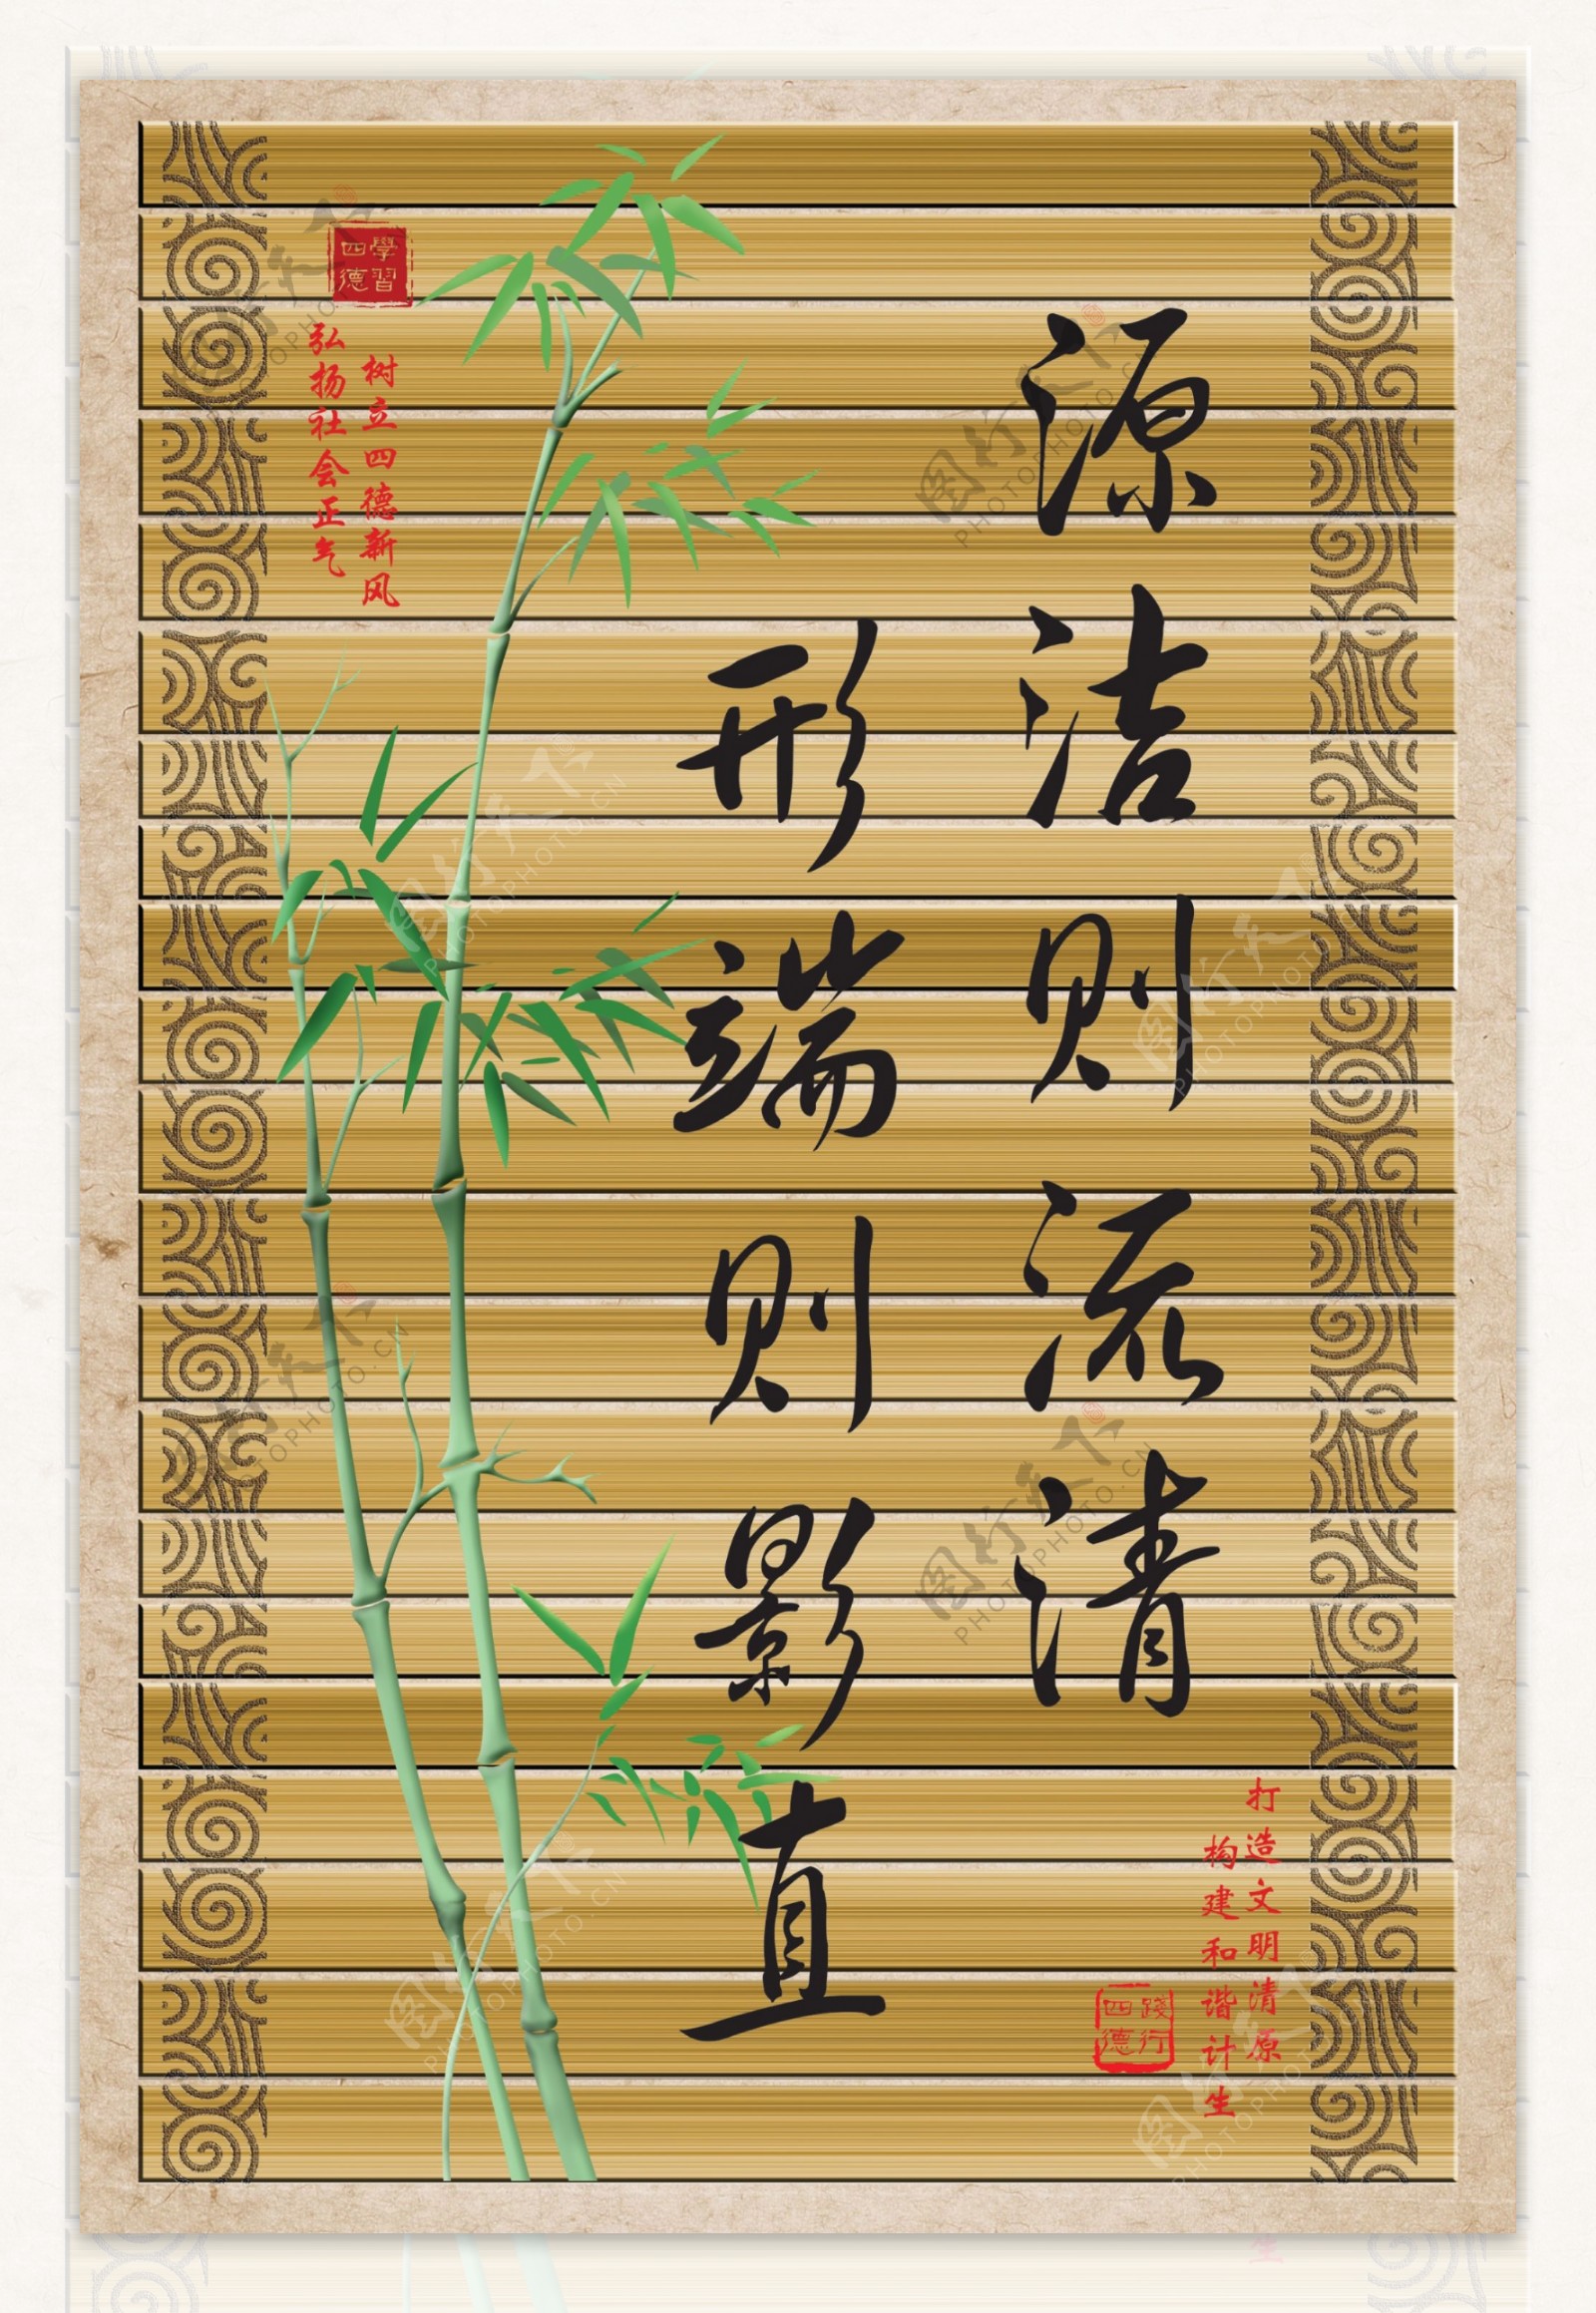 源洁则流清
形端则影直
學習
四德
树立四德新风
弘扬社会正气
打造文明清原
构建和谐计生
踐行
四德
图行天下
PHOTOPHOTO.CN